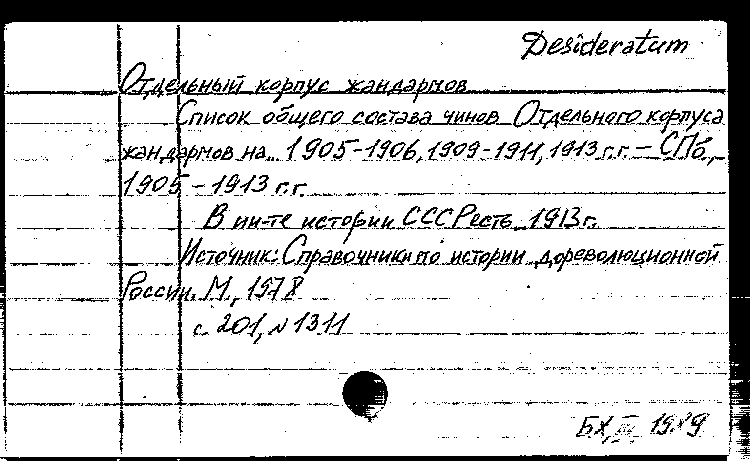 Desideratum
Отдельный корпус жандармов
Список общего состава чинов Отдельного корпуса
жандармов на 1905-1906, 1909-1911, 1913 г.г. – СПб.,
1905 – 1913 г.г.
В ин-те истории СССР есть 1913 г.
Источник: Справочники по истории дореволюционной
России. М., 1978
с. 201, № 1311
БХ, III, 1989